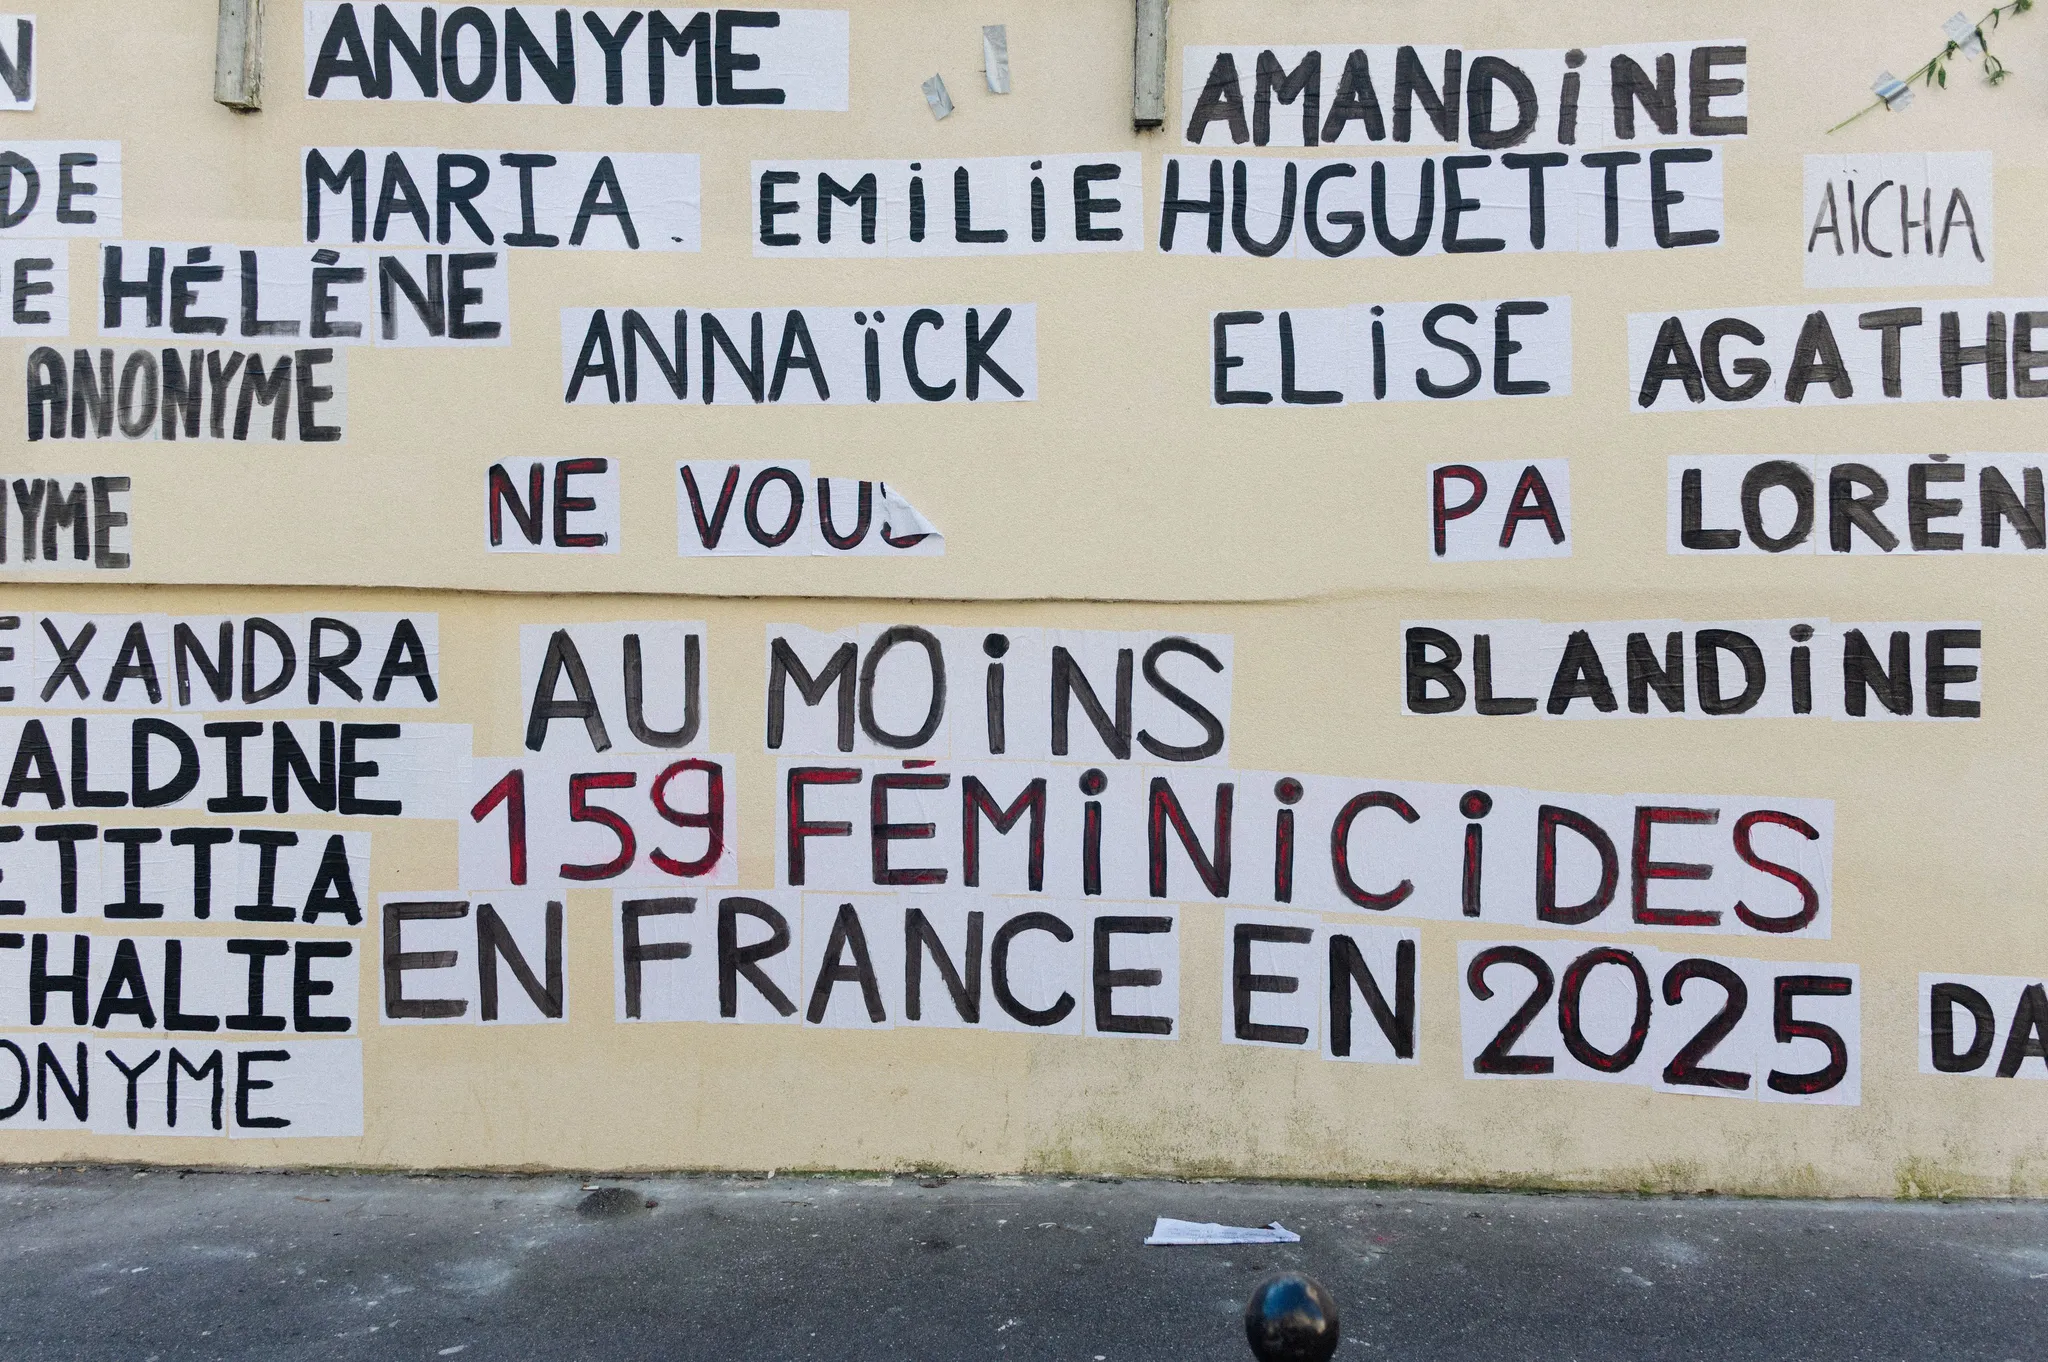 N ANONYME AMANDiNE
DE MARIA. EMiLiE HUGUETTE AÏCHA
E HÉLÈNE
ANONYME ANNAÏCK ELiSE AGATHE
NYME NE VOUS PA LORÉN
EXANDRA AU MOiNS BLANDiNE
ALDINE
159 FÉMiNiCiDES
ETITIA
THALIE EN FRANCE EN 2025 DA
ONYME